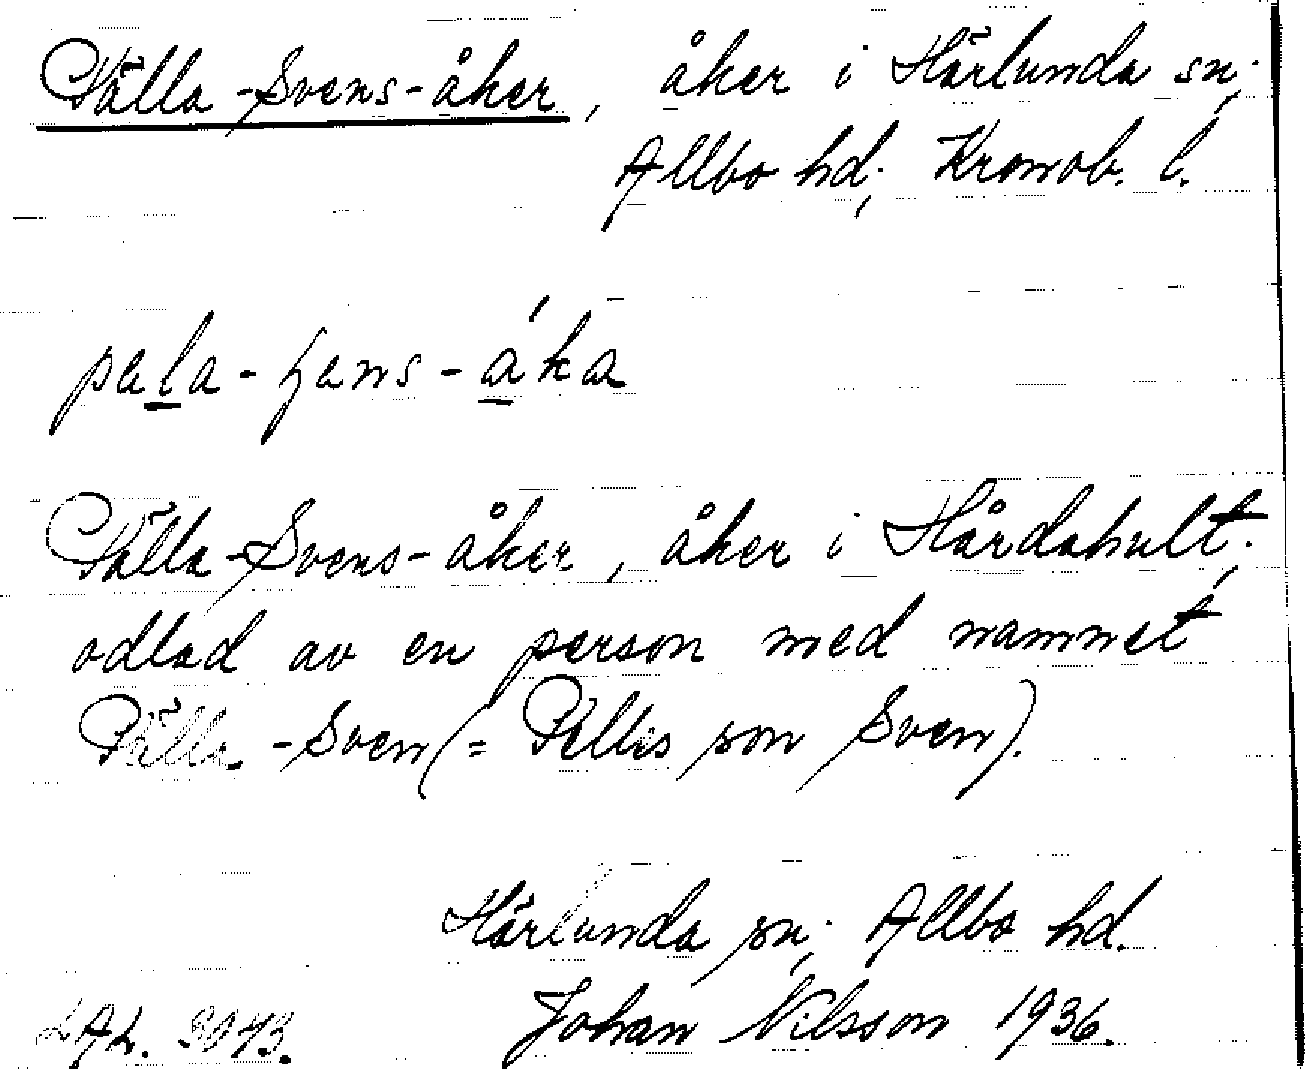 Pälla-Svens-åker, åker i Härlunda sn,
Allbo hd, Kronob. l.
Pälla-Svens-åker, åker i Hårdahult,
odlad av en person med namnet
Pälla-Sven (= Pelles son Sven).
Härlunda sn, Allbo hd.
LAL. 3043. Johan Nilsson 1936.